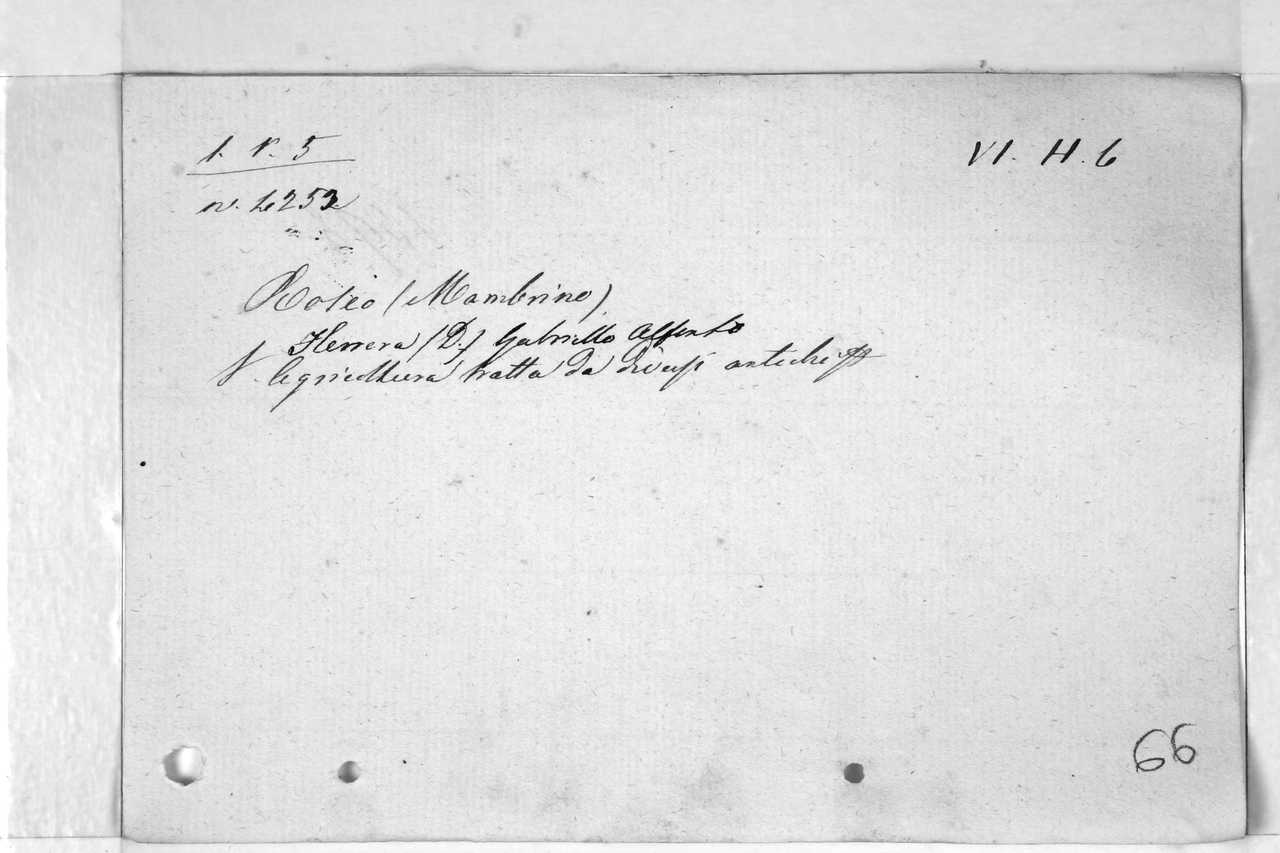 1. V. 5
VI. H. 6
n. 4253
Roseo (Mambrino)
Herrera (D.) Gabriello Alfonso
V. Agricultura tratta da diversi antichi
66